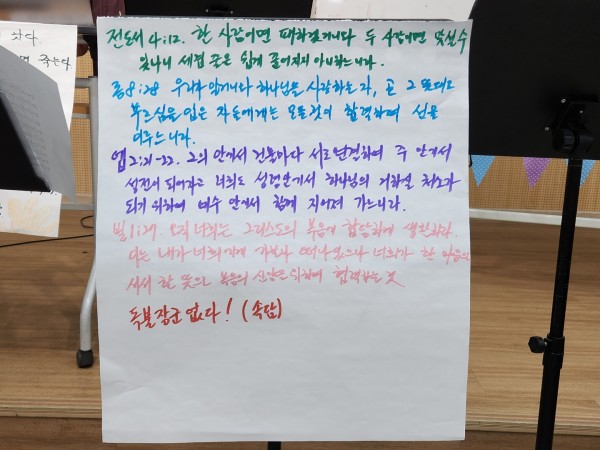 았다.
죽는다
전도서 4:12. 한 사람이면 패하겠거니와 두 사람이면 맞설수
있나니 세겹 줄은 쉽게 끊어지지 아니하느니라.
롬8:28 우리가 알거니와 하나님을 사랑하는 자, 곧 그 뜻대로
부르심을 입은 자들에게는 모든것이 합력하여 선을
이루느니라.
엡2:21-22. 그의 안에서 건물마다 서로 연결하여 주 안에서
성전이 되어가고 너희도 성령안에서 하나님의 거하실 처소가
되기 위하여 예수 안에서 함께 지어져 가느니라.
빌1:27. 오직 너희는 그리스도의 복음에 합당하게 생활하라.
이는 내가 너희에게 가보나 떠나있으나 너희가 한 마음으
서서 한 뜻으로 복음의 신앙을 위하여 협력하는 것
독불장군 없다! (속담)